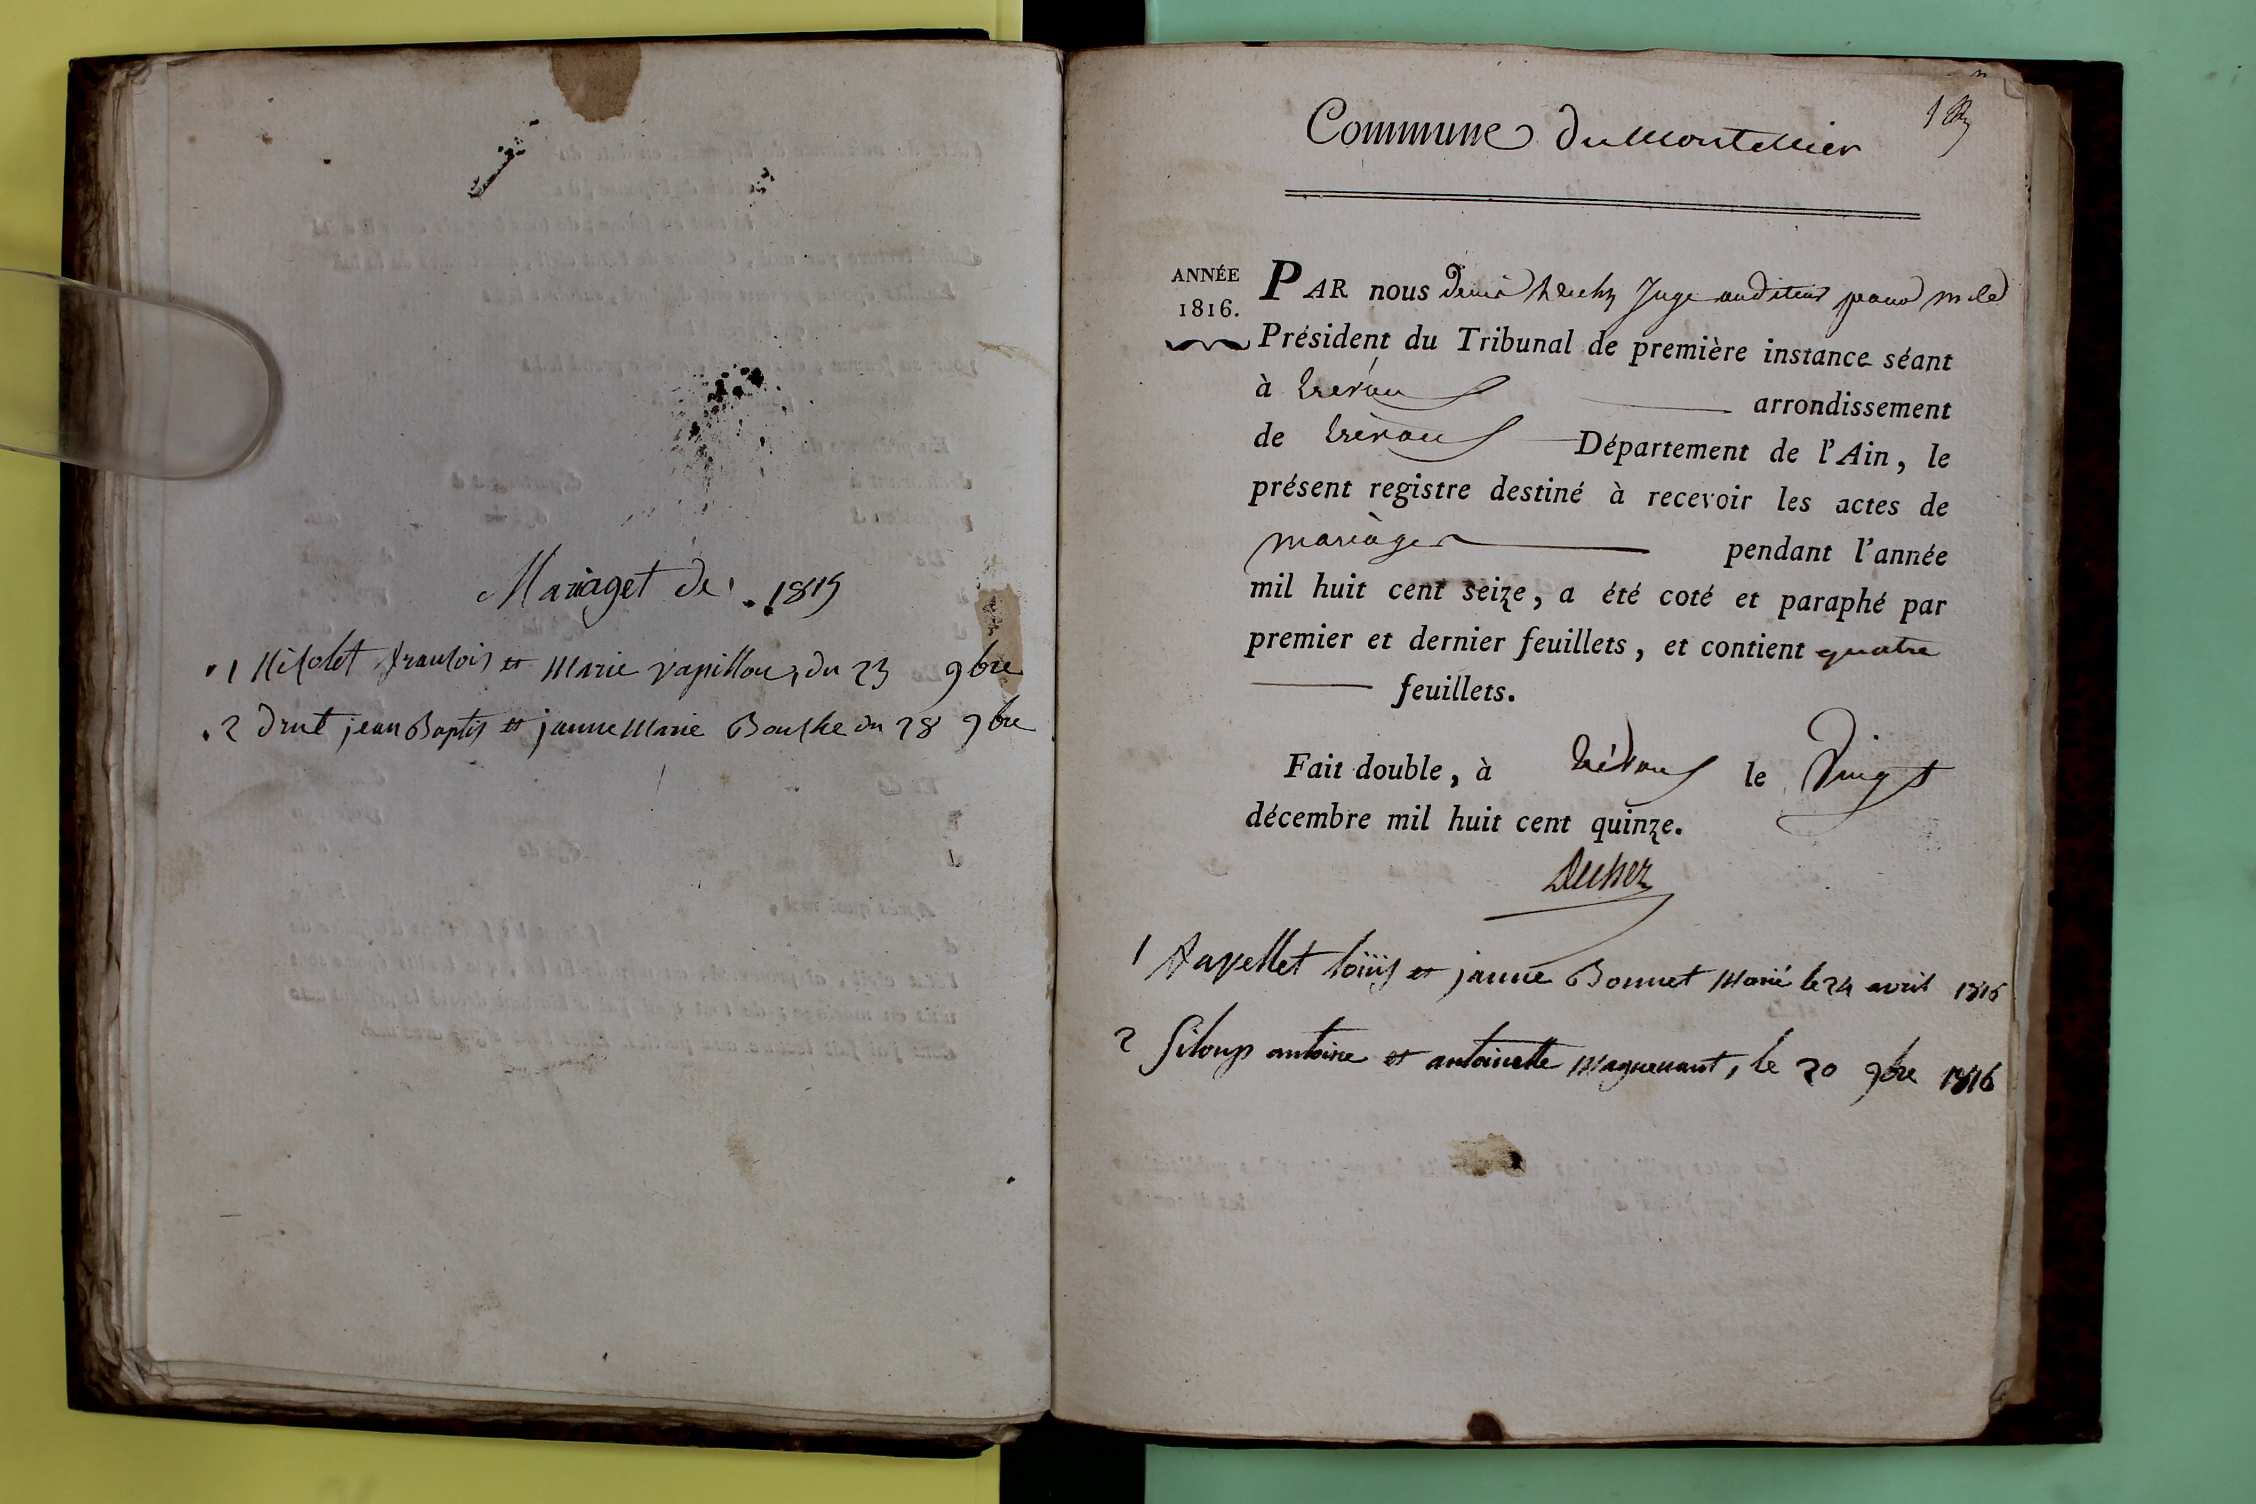 Mariaget de 1815
1 Nicolet francois et Marie vapillon, du 23 9bre
2 Drut jean Baptis et janne Marie Bouche du 28 9bre
Commune du Montellier
1
ANNÉE
1816.
PAR nous Denis Juge auditeur pour m le
Président du Tribunal de première instance séant
à trévoux arrondissement
de trévoux Département de l'Ain, le
présent registre destiné à recevoir les actes de
mariages pendant l'année
mil huit cent seize, a été coté et paraphé par
premier et dernier feuillets, et contient quatre
feuillets.
Fait double, à trévoux le vingt
décembre mil huit cent quinze.
1 louis et janne Bonnet Marié le 24 avril 1816
2 Siloup antoine et antoinette Maguenant, le 20 9bre 1816